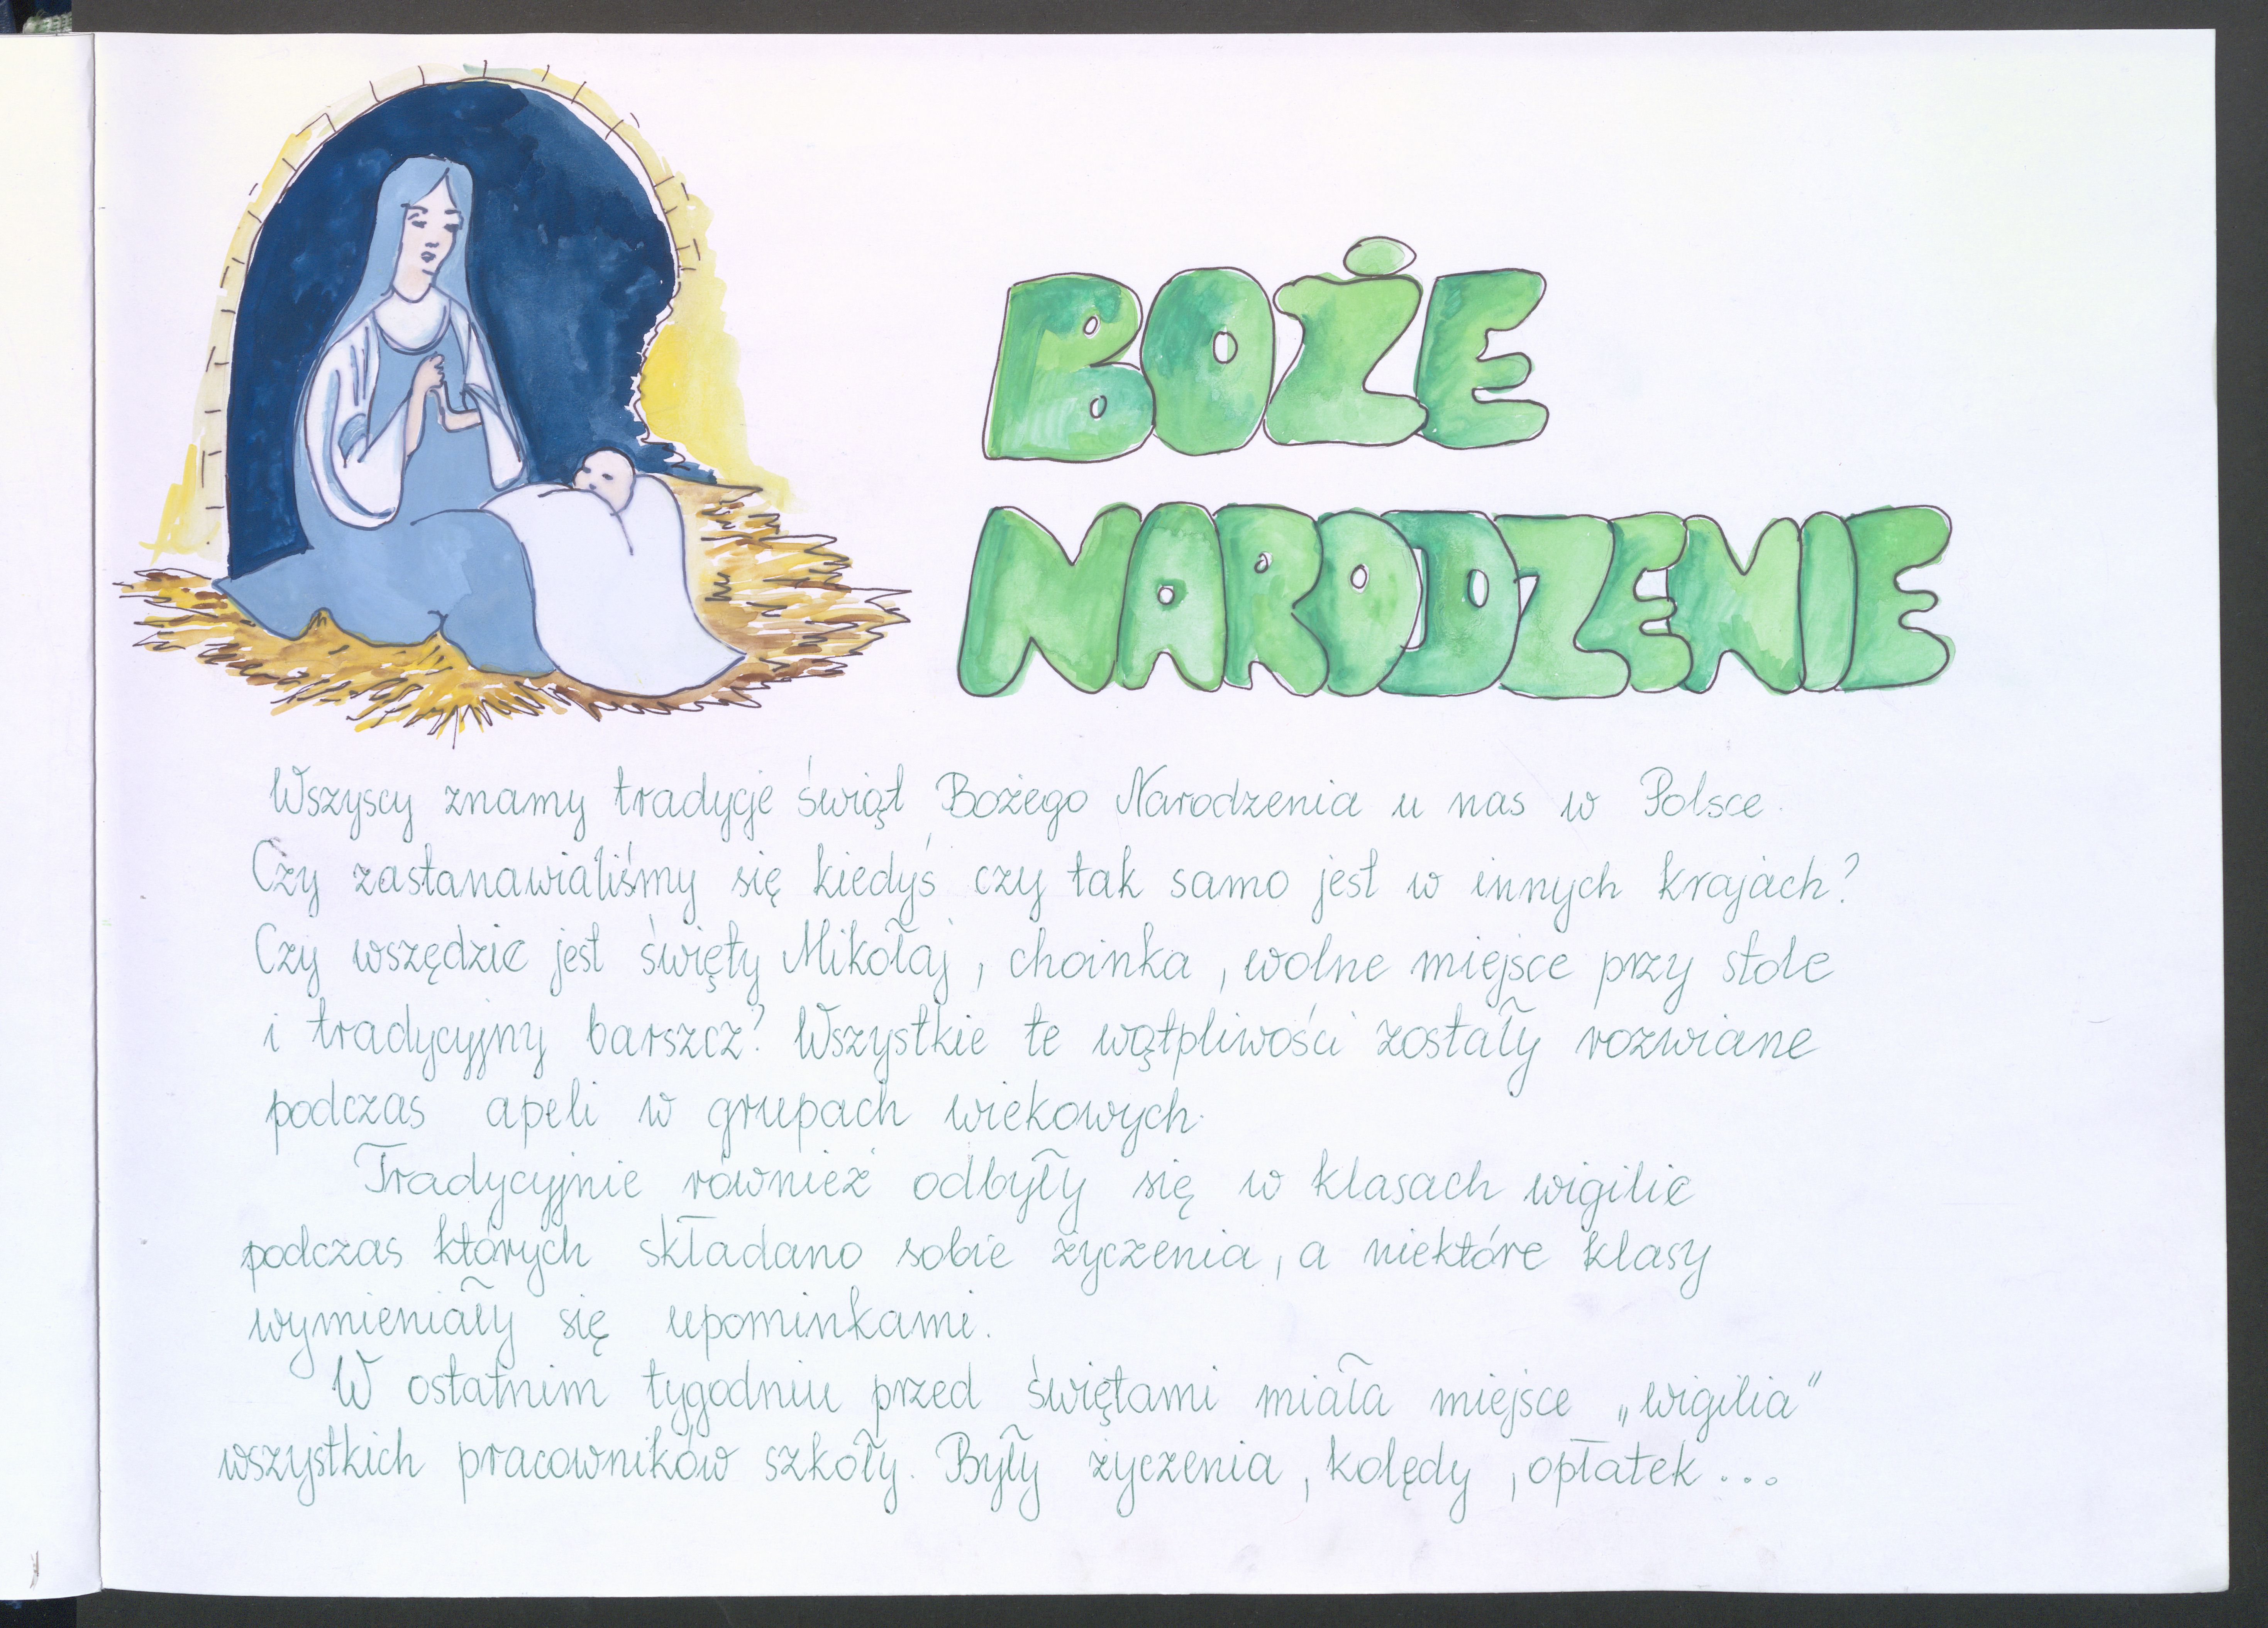 BOŻE
NARODZENIE
Wszyscy znamy tradycje świąt Bożego Narodzenia u nas w Polsce.
Czy zastanawialiśmy się kiedyś czy tak samo jest w innych krajach?
Czy wszędzie jest święty Mikołaj, choinka, wolne miejsce przy stole
i tradycyjny barszcz? Wszystkie te wątpliwości zostały rozwiane
podczas apeli w grupach wiekowych.
Tradycyjnie również odbyły się w klasach wigilie
podczas których składano sobie życzenia, a niektóre klasy
wymieniały się upominkami.
W ostatnim tygodniu przed świętami miała miejsce „wigilia"
wszystkich pracowników szkoły. Były życzenia, kolędy, opłatek...